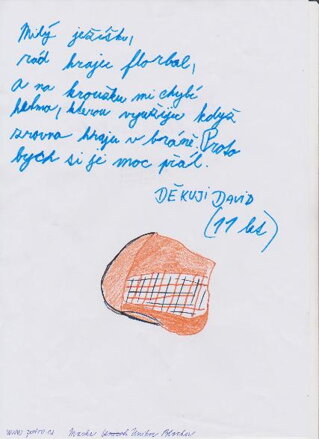 Milý ježíšku,
rád hraju florbal,
a na kroužku mi chybí
helma, kterou využiju když
zrovna hraju v bráně. Proto
bych si jí moc přál.
DĚKUJI DAVID
(11 let)